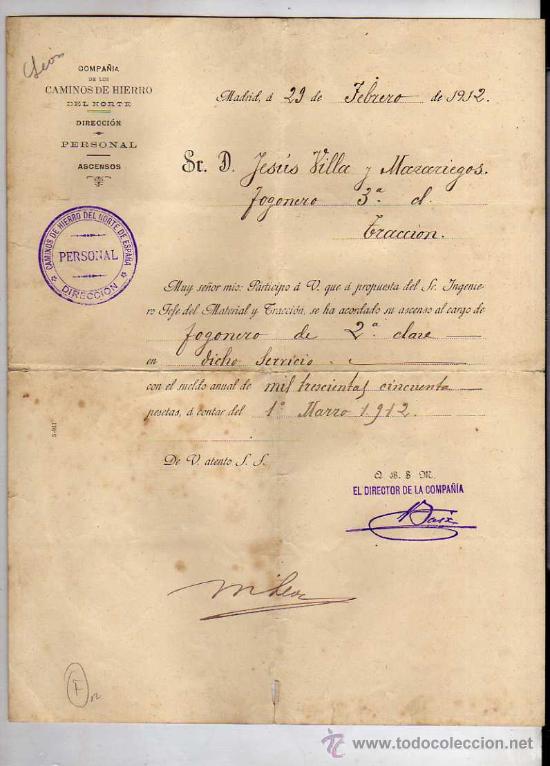 León
COMPAÑIA
DE LOS
CAMINOS DE HIERRO
DEL NORTE
DIRECCIÓN
PERSONAL
ASCENSOS
Madrid, á 29 de Febrero de 1912.
Sr. D. Jesús Villa y Mazariegos.
Fogonero 3ª cl.
Traccion.
CAMINOS DE HIERRO DEL NORTE DE ESPAÑA
PERSONAL
DIRECCION
Muy señor mio: Participo á V. que á propuesta del Sr. Ingenie-
ro Jefe del Material y Tracción, se ha acordado su ascenso al cargo de
Fogonero de 2ª clase
en dicho Servicio
con el sueldo anual de mil trescientas cincuenta
pesetas, á contar del 1º Marzo 1912.
De V. atento S. S.
Q. B. S. M.
EL DIRECTOR DE LA COMPAÑÍA
todocoleccion
http://www.todocoleccion.net